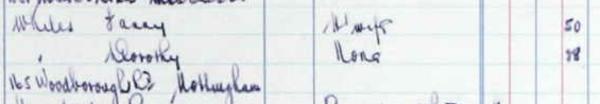 Whiles Fanny H'wife 50
" Dorothy None 28
165 Woodborough Rd Nottingham